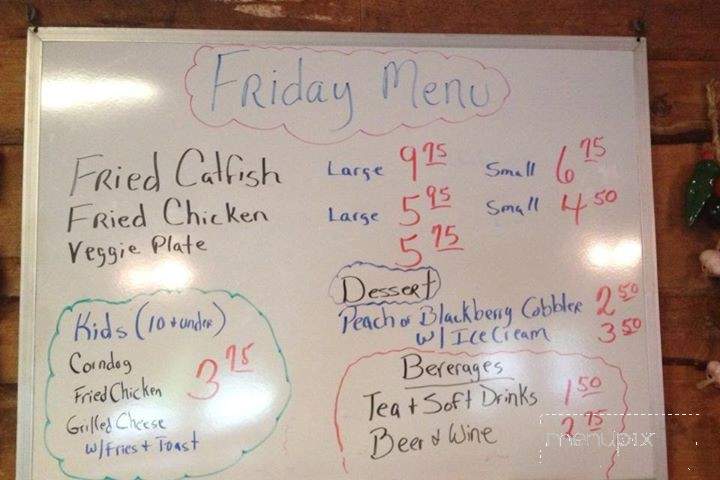 Friday Menu
Fried Catfish Large 9 75 Small 6 75
Fried Chicken Large 5 95 Small 4 50
Veggie Plate 5 75
Dessert
Peach or Blackberry Cobbler 2 50
w/ Ice Cream 3 50
Kids (10 + under)
Corndog
Fried Chicken 3 75
Grilled Cheese
w/ Fries + Toast
Bererages
Tea + Soft Drinks 1 50
Beer & Wine 2 75
menupix